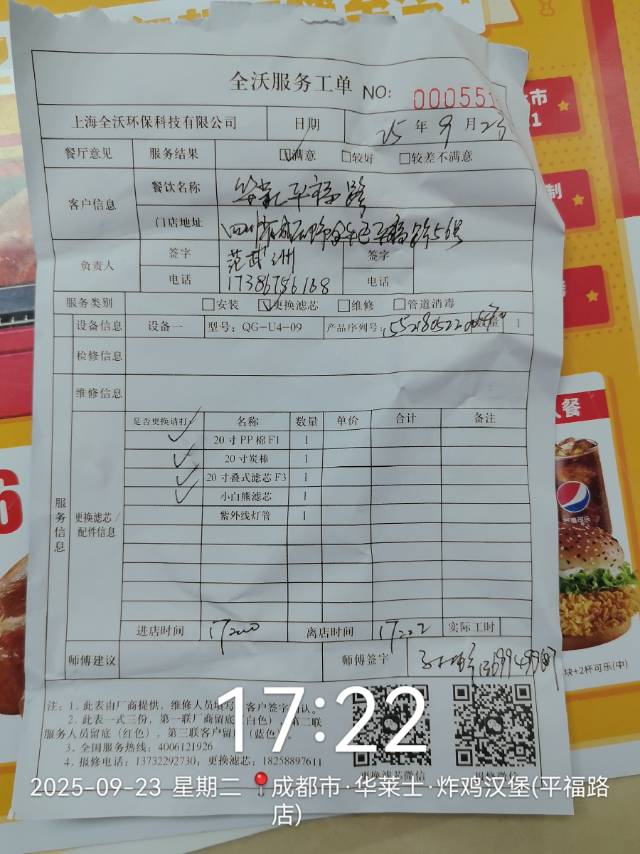 全沃服务工单 NO: 000551
上海全沃环保科技有限公司 日期 25 年 9 月 23
餐厅意见 服务结果 满意 较好 较差不满意
客户信息 餐饮名称 华莱士平福路
门店地址 四川省成都
负责人 签字 签字
电话 17386786168 电话
服务类别 安装 更换滤芯 维修 管道消毒
设备信息 设备一 型号:QG-U4-09 产品序列号: 1
检修信息
维修信息
服务信息
更换滤芯/配件信息
是否更换请打√ 名称 数量 单价 合计 备注
√ 20寸PP棉F1 1
√ 20寸炭棒 1
√ 20寸叠式滤芯F3 1
√ 小白熊滤芯 1
紫外线灯管 1
进店时间 离店时间 实际工时
师傅建议 师傅签字
注:1、此表由厂商提供,维修人员填写,客户签字确认。
2、此表一式三份,第一联厂商留底(白色),第二联
服务人员留底(红色),第三联客户留底(蓝色)
3、全国服务热线:4006121926
4、报修电话:13732292730,更换滤芯:18258897611
更换滤芯微信 报修微信
17:22
2025-09-23 星期二 成都市·华莱士·炸鸡汉堡(平福路
店)
块+2杯可乐(中)